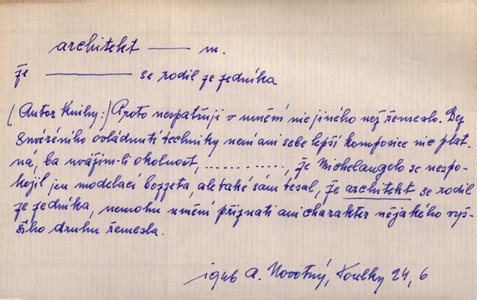 architekt —— m.
že ———— se rodil ze zedníka
(Autor knihy:) Proto nespatřuji v umění nic jiného než řemeslo. Bez
suverénního ovládnutí techniky není ani sebe lepší komposice nic plat-
ná, ba uvážím-li okolnost, ............, že Michelangelo se nespo-
kojil jen modelací bozzeta, ale také sám tesal, že architekt se rodil
ze zedníka, nemohu umění přiznati ani charakter nějakého vyš-
šího druhu řemesla.
A. Novotný, Toulky 24, 6